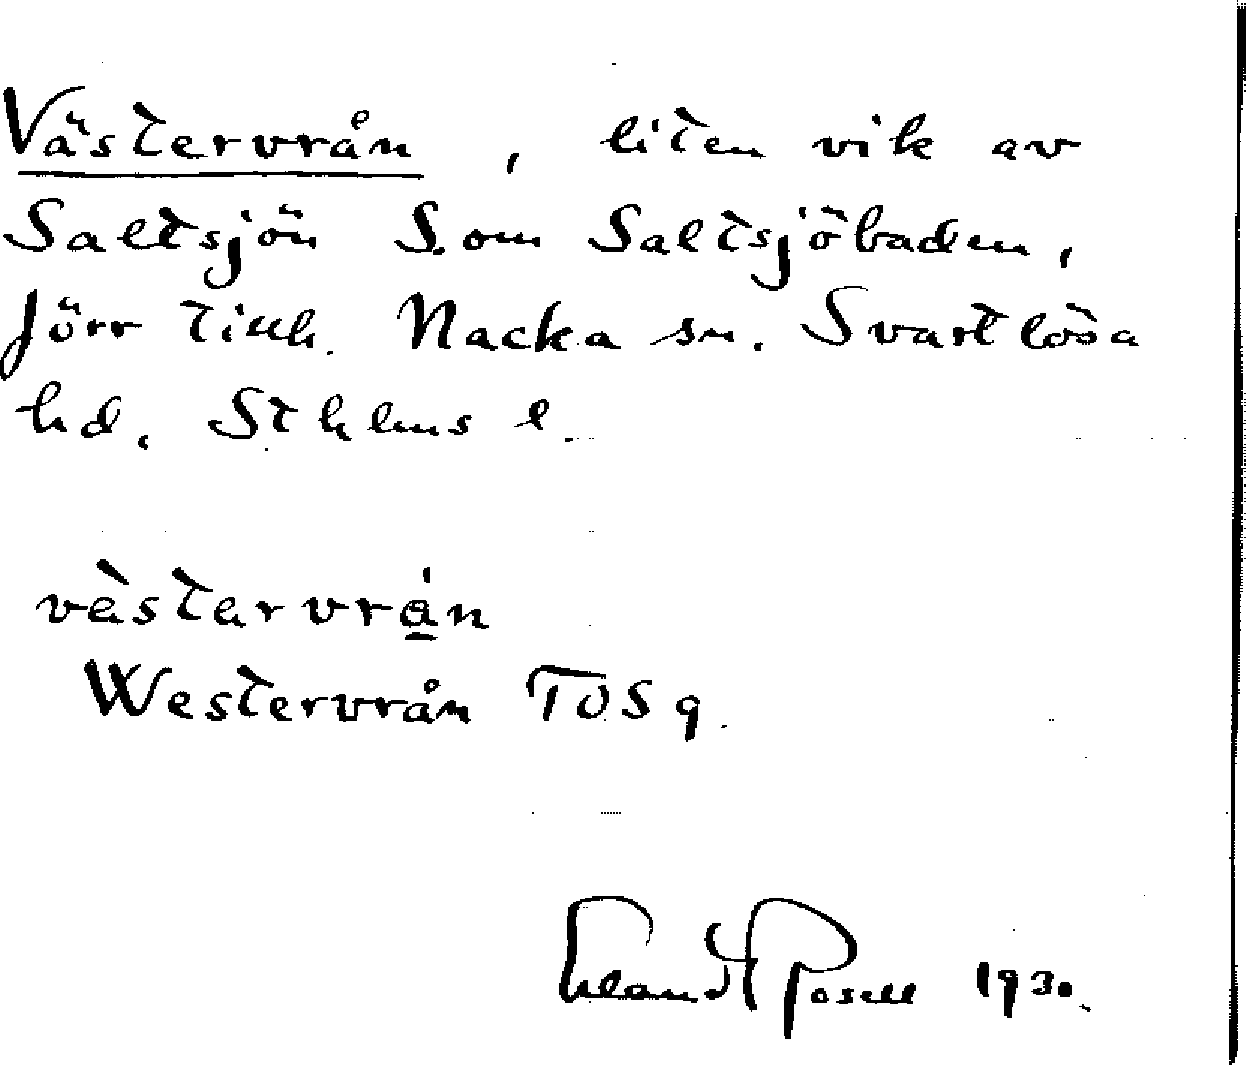 Västervrån, liten vik av
Saltsjön S. om Saltsjöbaden,
förr tillh. Nacka sn. Svartlösa
hd. Sthlms l.
vàstarvrån
Westervrån TOS 9.
Erland Rosell 1930.